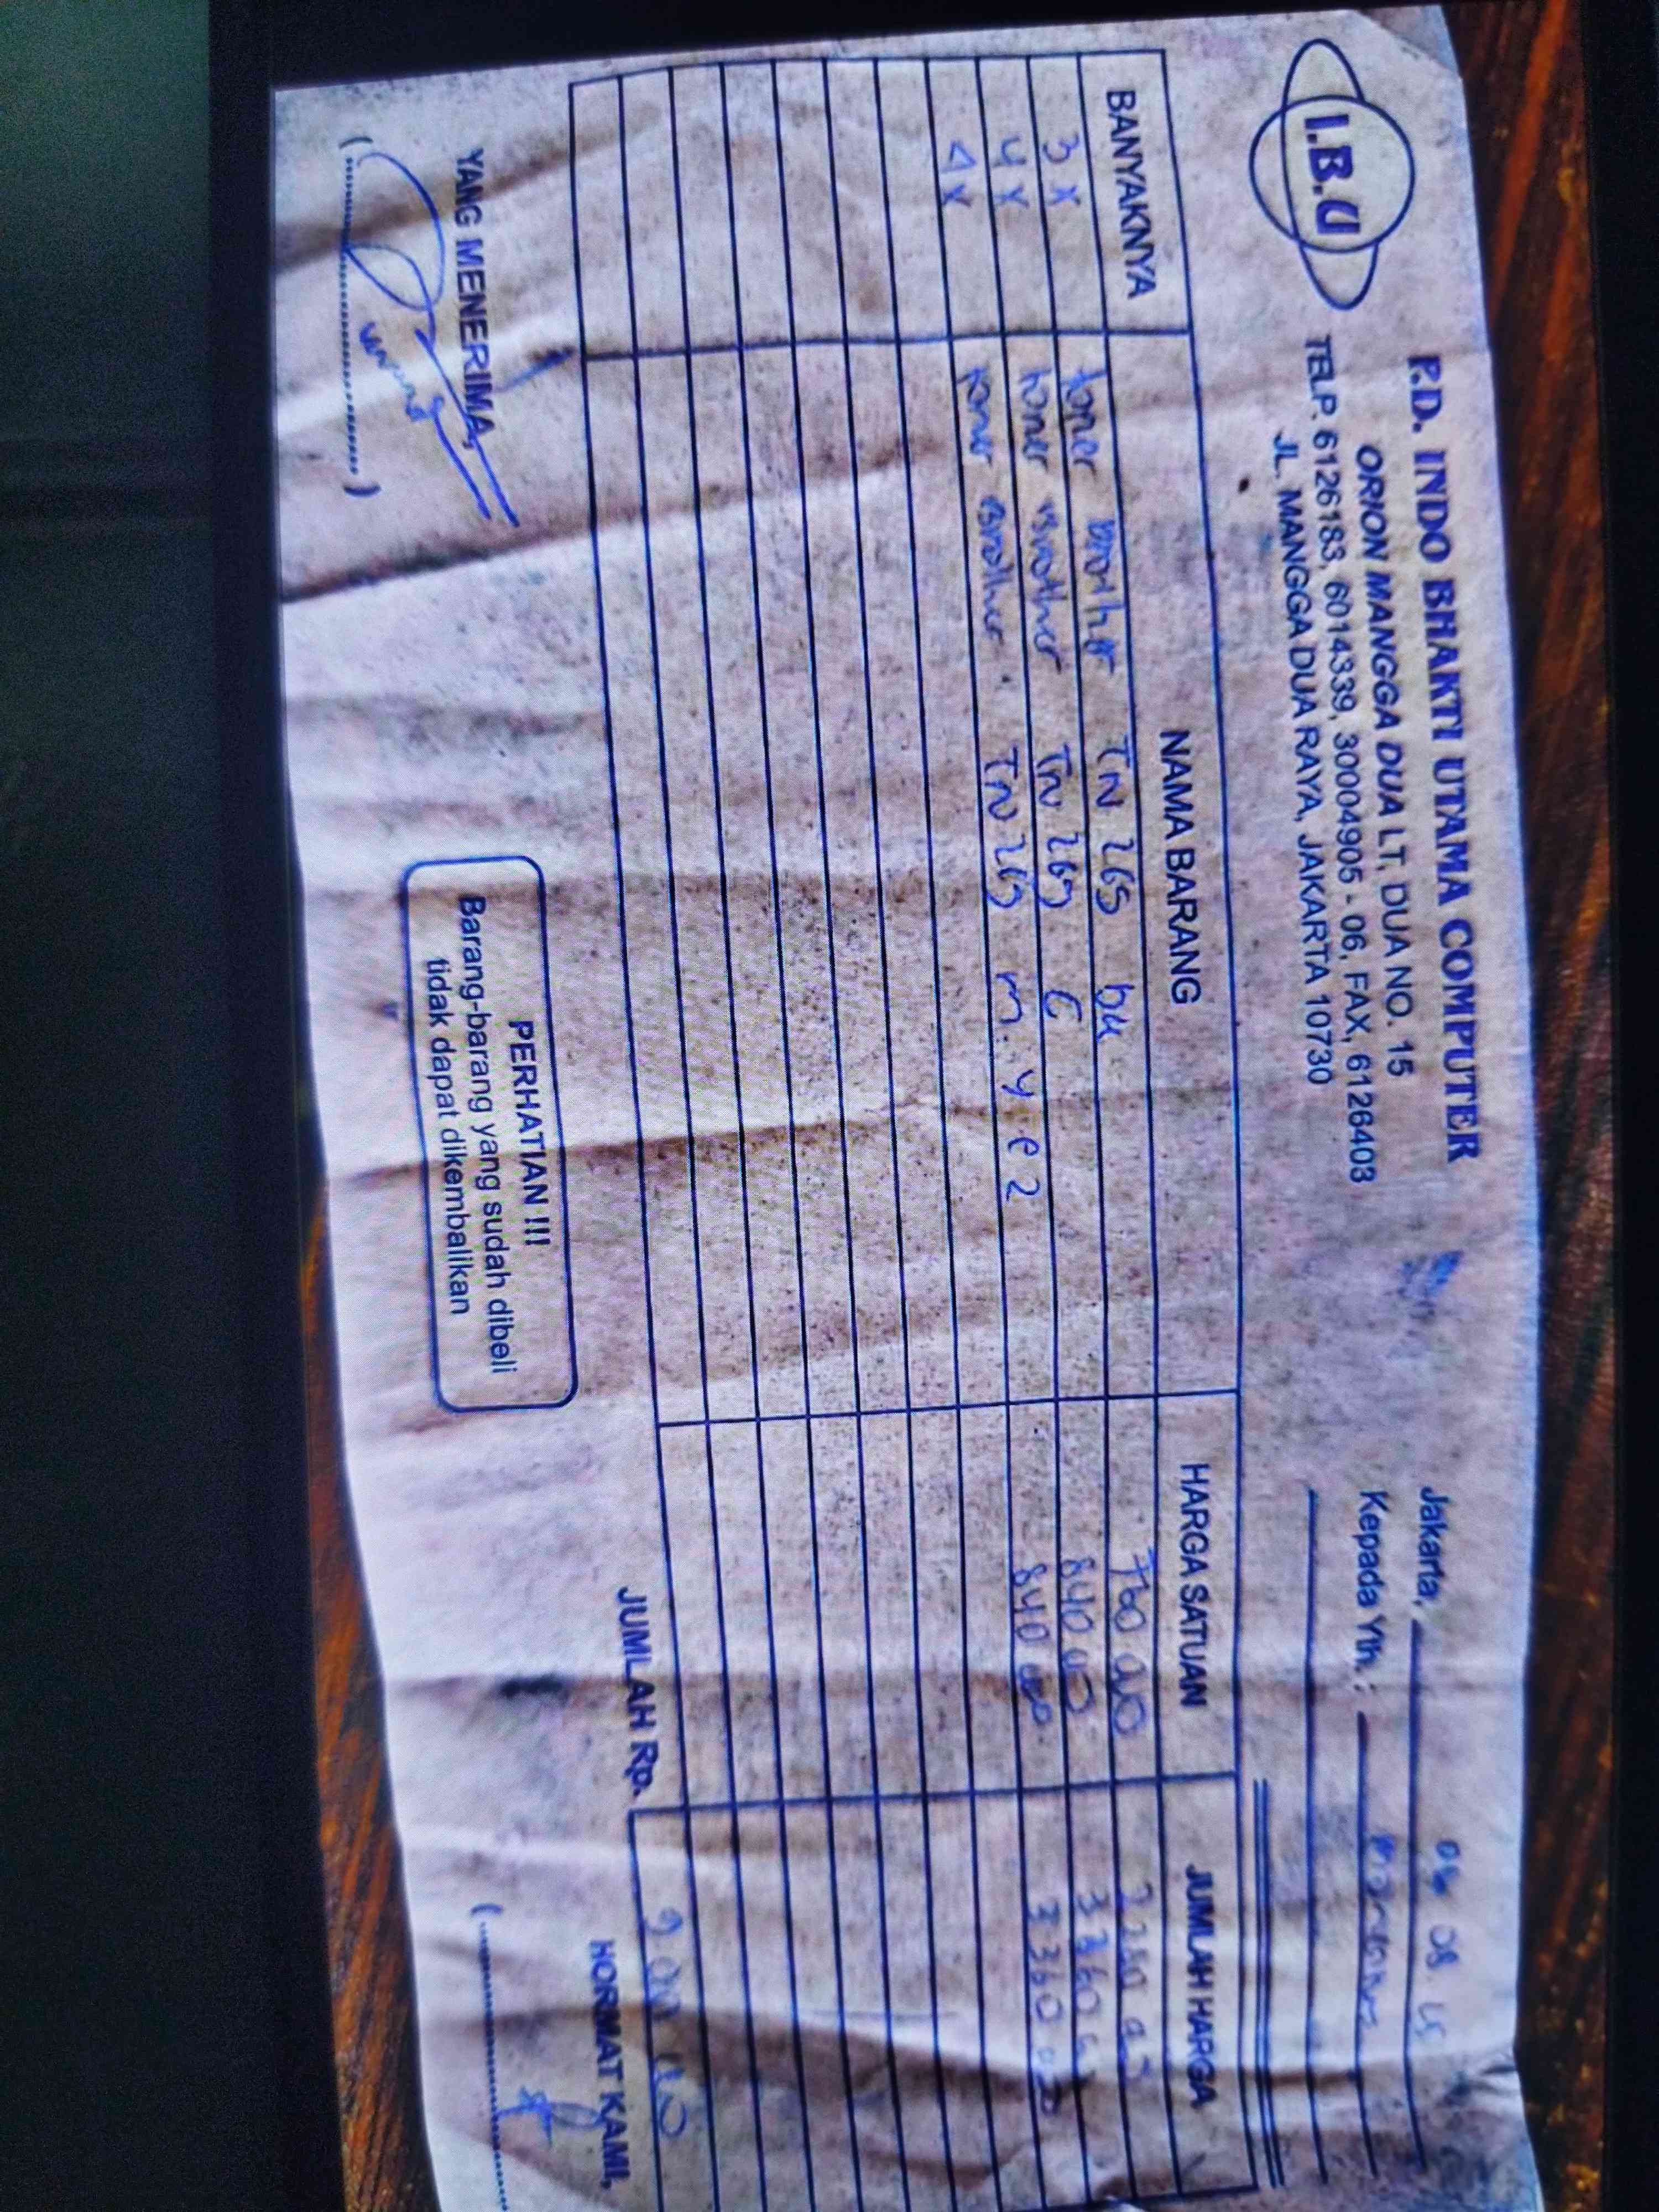 I.B.U
P.D. INDO BHAKTI UTAMA COMPUTER
ORION MANGGA DUA LT, DUA NO. 15
TELP. 6126183, 6014339, 30004905 - 06, FAX, 6126403
JL. MANGGA DUA RAYA, JAKARTA 10730
Jakarta,
Kepada Yth. :
BANYAKNYA NAMA BARANG HARGA SATUAN JUMLAH HARGA
3 x toner brother TN 265 760 000
4 x toner Brother TN 265 C 840 000 3 360
4 x toner Brother TN 265 m. y @ 2 840 000 3 360 000
JUMLAH Rp.
YANG MENERIMA,
PERHATIAN !!!
Barang-barang yang sudah dibeli
tidak dapat dikembalikan
HORMAT KAMI,